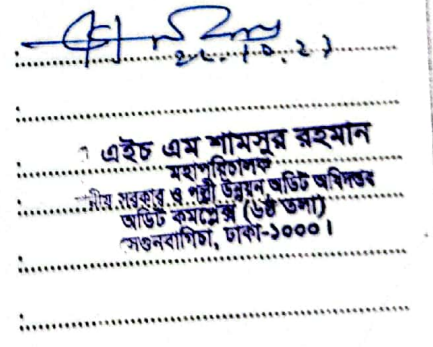 ২৮.১০.২১
এইচ এম শামসুর রহমান
মহাপরিচালক
স্থানীয় সরকার ও পল্লী উন্নয়ন অডিট অধিদপ্তর
অডিট কমপ্লেক্স (৬ষ্ঠ তলা)
সেগুনবাগিচা, ঢাকা-১০০০।